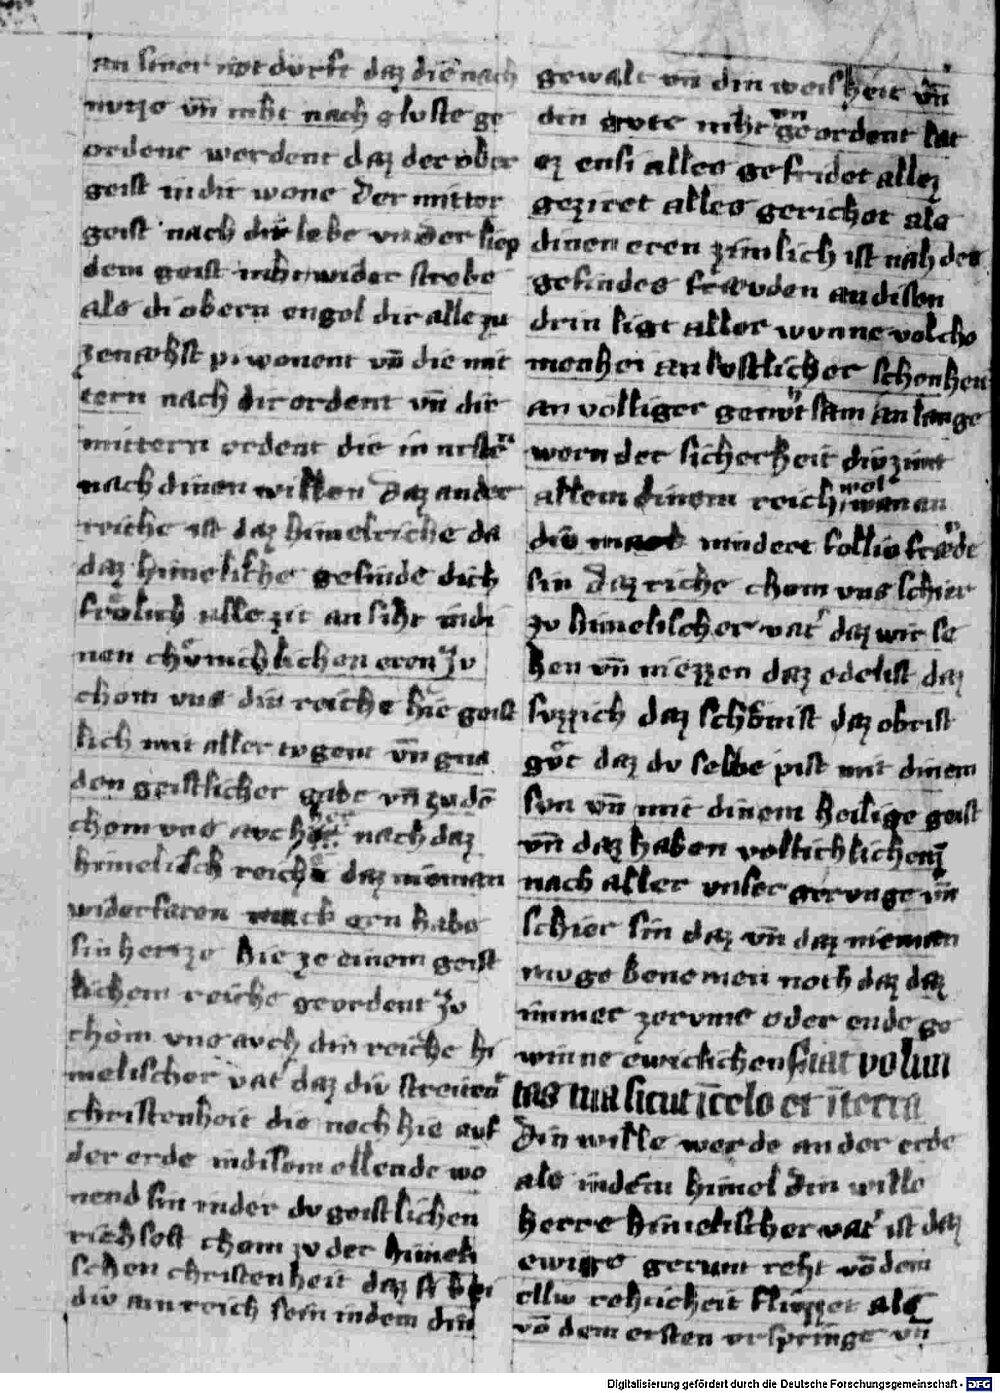 an siner not durft daz die nach
nutze vn̄ niht nach gluste ge
ordent werdent daz der ober
geist in dir wone Der mitter
geist nach dir lebe vn̄ der
dem geist niht wider strebe
als di obern engel dir alle zu
wonent vn̄ die mit
tern nach dir ordent vn̄ die
mittern ordent die
nach dinen willen Daz ander
reiche ist daz himelriche da
daz himelische gesinde dich
frölich alle zit an siht in di
nen chuͦnichlichen eren Zv
chom vns din reiche hie geist
lich mit aller tvgent vn̄ gna
den geistlicher gabe vn̄
chom vns avch nach daz
himelisch reich daz nieman
widerfaren habe
sin hertze hie ze einem geist
lichem reiche geordent Zv
chom vns avch din reiche hi
melischer vat' daz div
christenheit die noch hie auf
der erde in disem ellende wo
nend sin in der dv geistlichen
chom zv der himeli
schen christenheit daz
div ain reich sein in dem din
gewalt vn̄ din weisheit vn̄
din gvte niht vn geordent lat
ez ensi alles gefridet allez
geziret alles gerichet als
dinen eren zimlich ist nah des
gesindes frævden an disen
drin ligt aller wunne volche
menhei an lvstlicher schonheit
an volliger genvhtsam an lange
wern der sicherheit div zimt
allem dinem reich wol wan an
div mindert
sin Daz riche chom vns schier
zv himelischer vat' daz wir se
hen vn̄ niezzen daz edelist daz
svzzich daz schönist daz obrist
guͦt daz dv selbe pist mit dinem
svn vn̄ mit dinem heilige geist
vn̄ daz haben vollichlichen
nach aller vnser gervnge vn̄
schier sin daz vn̄ daz nieman
mvge benemen noch daz daz
immer zervnne oder ende ge
winne ewiclichen Fiat volun
tas tua sicut ī celo et ī terra
Din wille werde an der erde
als in dem himel Din wille
herre himelischer vat' ist daz
ewige reht vō dem
ellw fliezzet als
vō dem ersten vrspringe vn̄